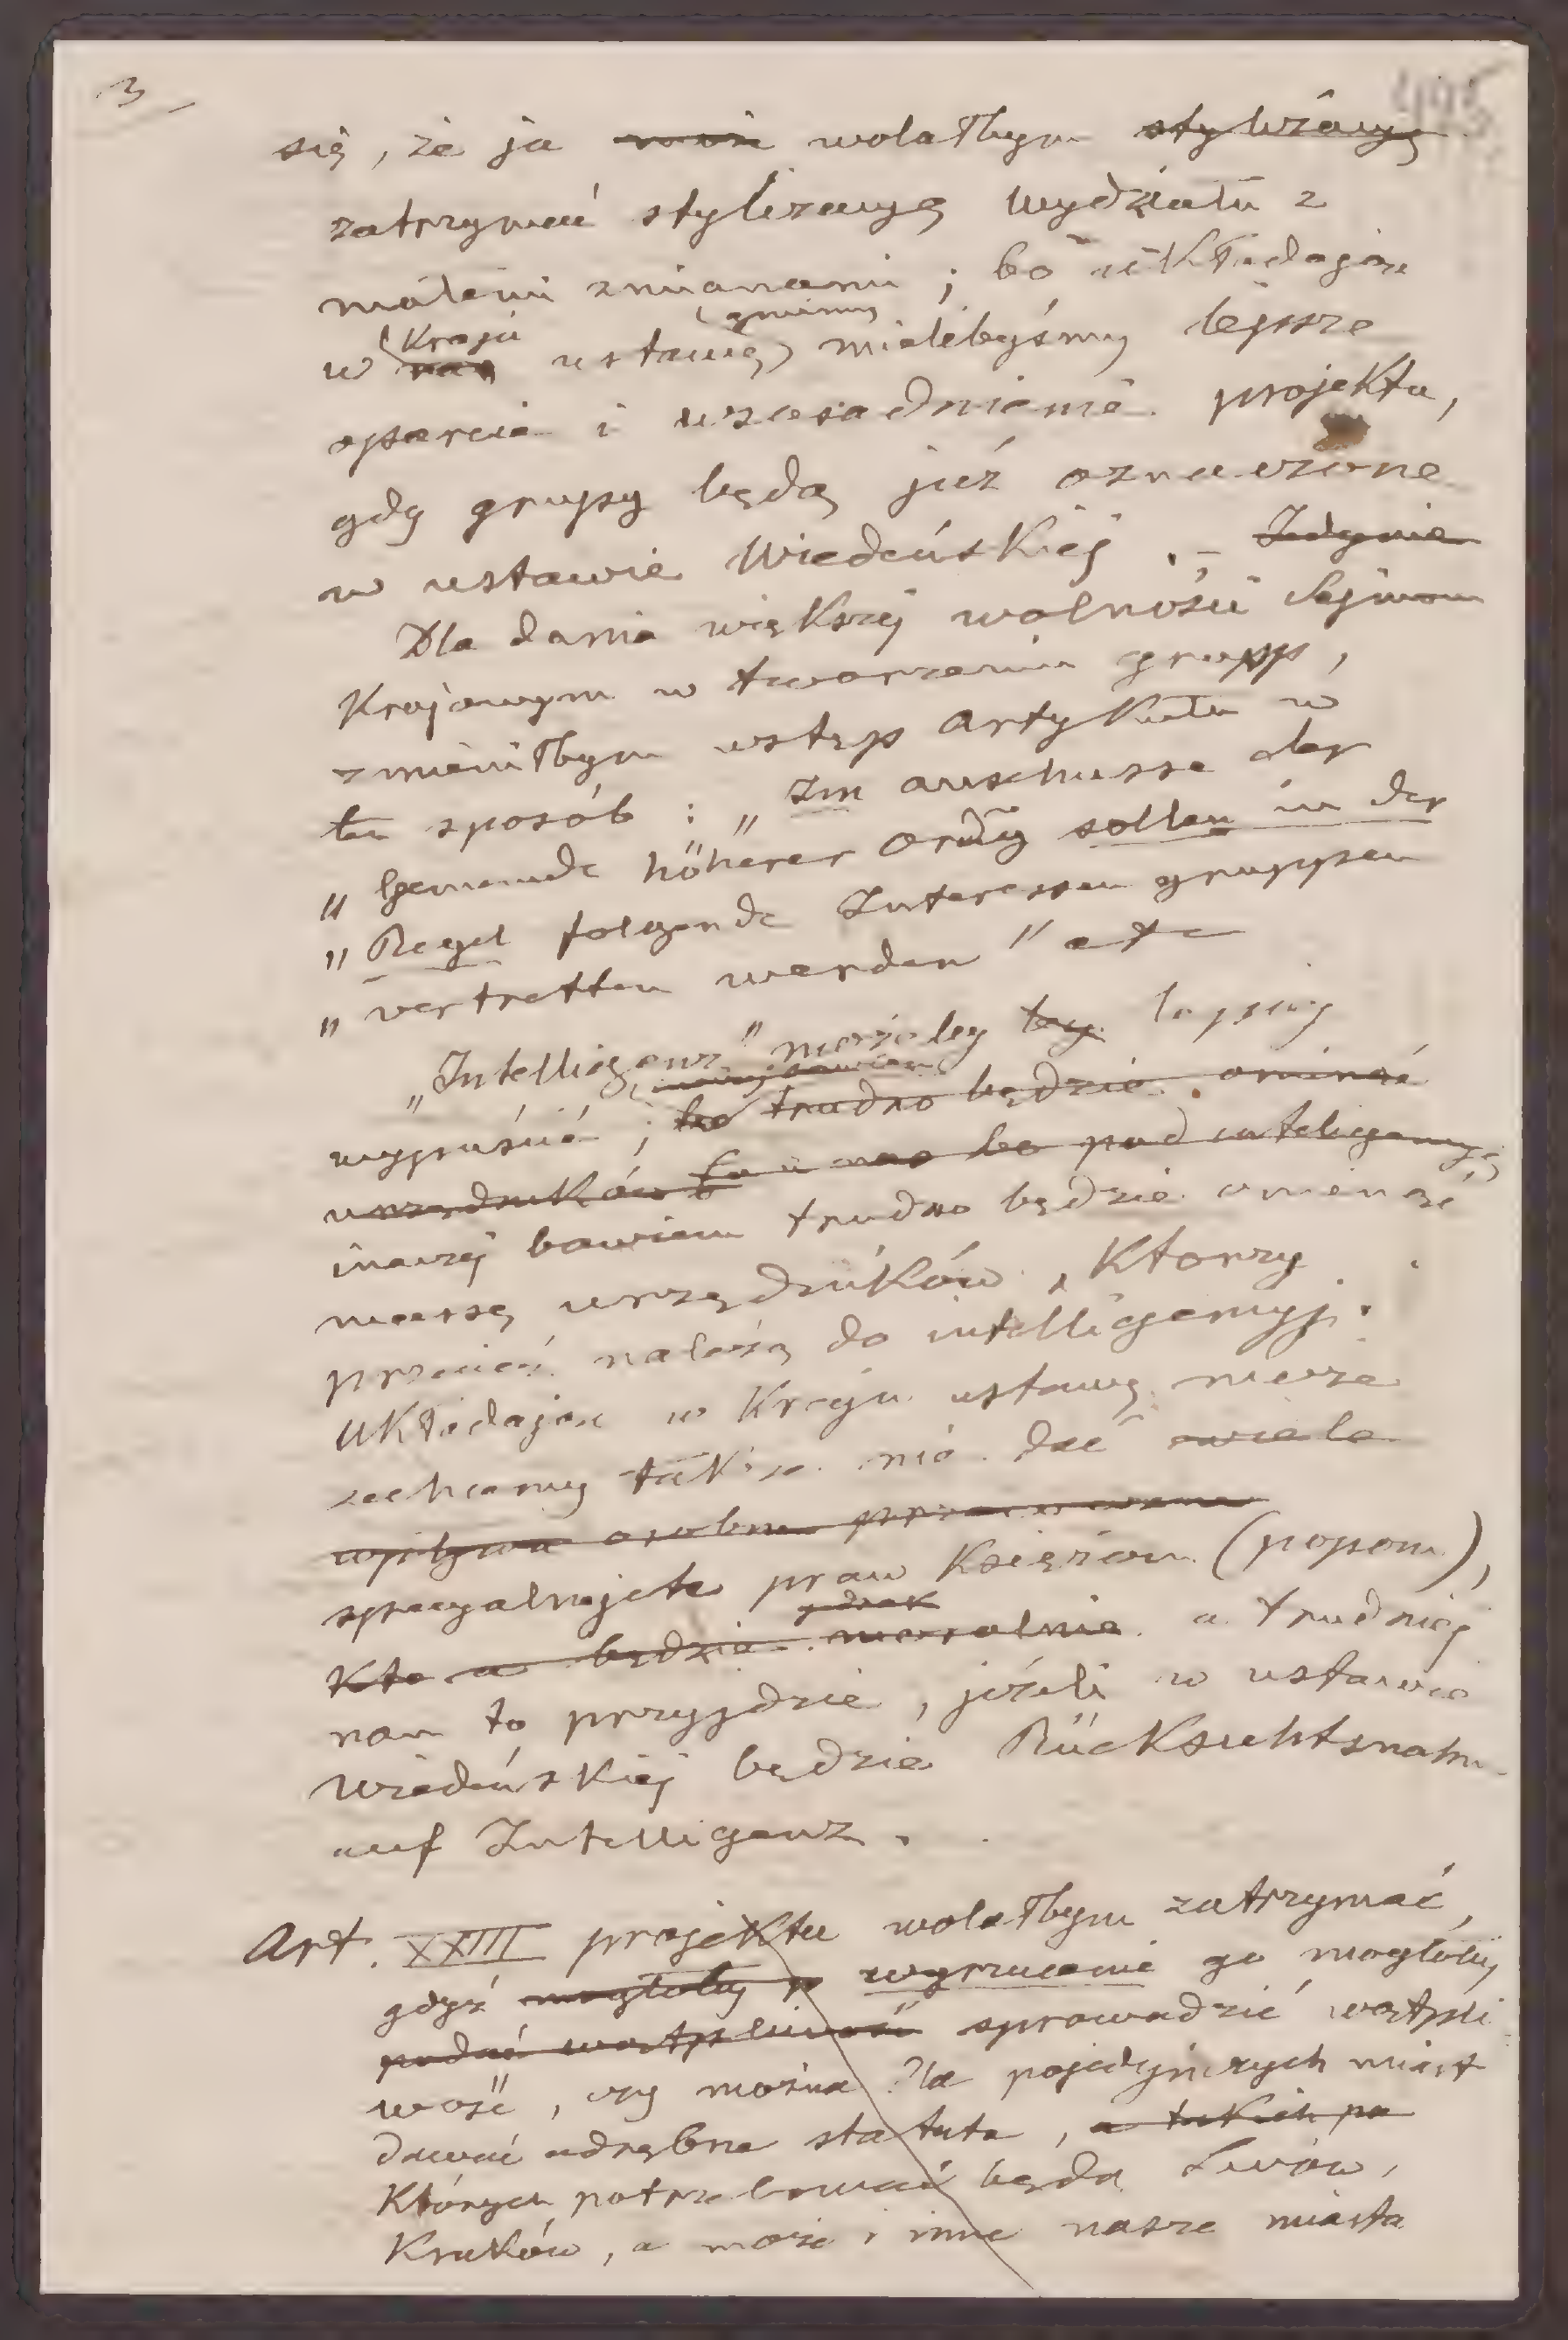 3
się, że ja wolałbym stylizacyę
zatrzymać stylizacyę Wydziału z
małemi zmianami; bo układając
w Kraju ustawę gminną mielibyśmy lepsze
oparcie i uzasadnienie projektu,
gdy grupy będą już oznaczone
w ustawie Wiedeńskiej. – Jedynie
Dla dania większej wolności Sejmom
Krajowym w tworzeniu grupp,
zmieniłbym wstęp artykułu w
ten sposób: „Im ausschusse der
„Gemeinde höherer Ordng sollen in der
„Regel folgende Interessen gruppen
„vertretten werden" etc
„Intelligenz" możeby lepiej
wypuścić; bo trudno będzie ominąć
urzędników bo pod inteligencyę
inaczej bowiem trudno będzie ominąć
masę urzędników, którzy
przecież należą do intelligencyj.
Układając w Kraju ustawę może
zechcemy także nie dać wiele
wpływu osobne
specyalnych praw Księżom (popom),
Kto a będzie moralnie a trudniej
nam to przyjdzie, jeżeli w ustawie
wiedeńskiej będzie Rücksichtsnahm
auf Intelligenz.
Art. XXIII projektu wolałbym zatrzymać,
gdyż mogłoby wyrzucenie go mogłoby
podać wątpliwość sprowadzić wątpli
wość, czy można dla pojedyńczych miast
dawać odrębne statuta, a takich po
których potrzebować będą Lwów,
Kraków, a może i inne nasze miasta